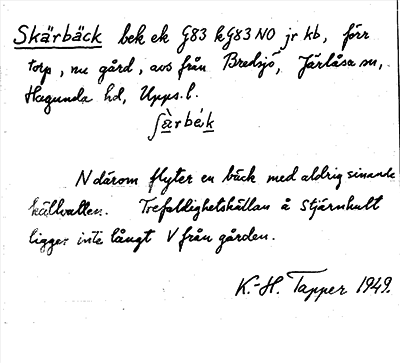 Skärbäck bek ek G83 kG83 NO jr kb, förr
torp, nu gård, avs från Bredsjö, Järlåsa sn,
Hagunda hd, Upps. l.
ʃà̱rbé̱k
N därom flyter en bäck med aldrig sinande
källvatten. Trefaldighetskällan å Stjärnhult
ligger inte långt V från gården.
K.-H. Tapper 1949.